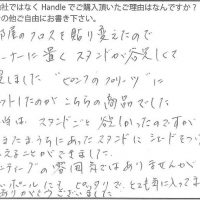 社ではなく Handle でご購入頂いたご理由はなんですか？
の他ご自由にお書き下さい。
部屋のクロスを貼り変えたので
ーナーに置く スタンドが欲しくて
しました "ピンクのプリーツ" に
ットしたのが こちらの商品でした
は スタンドごと 欲しかったのですが
またまうちにあったスタンドに シェードをつ
えることができました。
ンティークの 雰囲気ではありませんが
いポールにも ピッタリで、とても気に入ってま
ありがとうございました